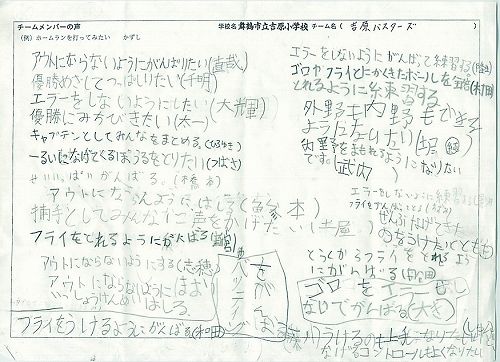 チームメンバーの声
(例) ホームランを打ってみたい かずし
学校名 舞鶴市立吉原小学校 チーム名 ( 吉原バスターズ )
アウトにならないようにがんばりたい
優勝めざしてつっぱしりたい(千明)
エラーをしないようにしたい(大輝)
優勝にみちびきたい(太一)
キャプテンとしてみんなをまとめる。(ひろゆき)
一るいになげてくるぼうるをとりたい(つばさ)
せいいっぱいがんばる。
アウトにならんようにはしる
捕手としてみんなに声をかけたい(土屋)
フライをとれるようにがんばる
アウトにならないようにする(志穂)
アウトにならないようにはよう
いっしょうけんめいはしる
フライをうけるようにがんばる(和田)
バッティングをがんばる
エラーをしないようにがんばって練習する
ゴロやフライとかきたボールを全部
とれるように練習する
外野も内野もできる
ようになりたい
内野をまもれるようになりたい
です。(武内)
エラーをしないように練習
ぜんぶなげてきた
のをうけたいとも
とうくからフライをとれるよう
にがんばる
ゴロをにご
ないでがんばる(大き)
うけるのも上手になりたい
なげるコントロールもよくなりたい